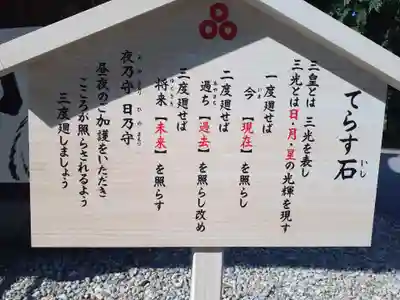 てらす石
いし
三皇とは 三光を表し
三光とは日・月・星の光輝を現す
一度廻せば
今【現在】を照らし
いま
二度廻せば
過ち【過去】を照らし改め
あやまち
三度廻せば
将来【未来】を照らす
ゆくすえ
夜乃守 日乃守
よのまもり ひのまもり
昼夜のご加護をいただき
こころが照らされるよう
三度廻しましょう